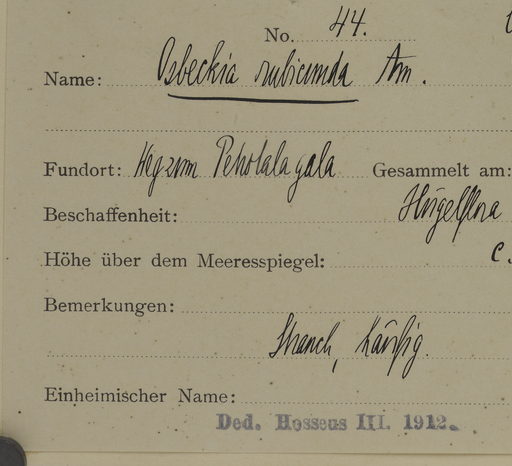 No. 44.
Name: Osbeckia rubicunda Arn.
Fundort: Weg zum Pehotalagala Gesammelt am:
Beschaffenheit: Hügelflora
Höhe über dem Meeresspiegel: c.
Bemerkungen:
Strauch, häufig.
Einheimischer Name:
Ded. Hosseus III. 1912.